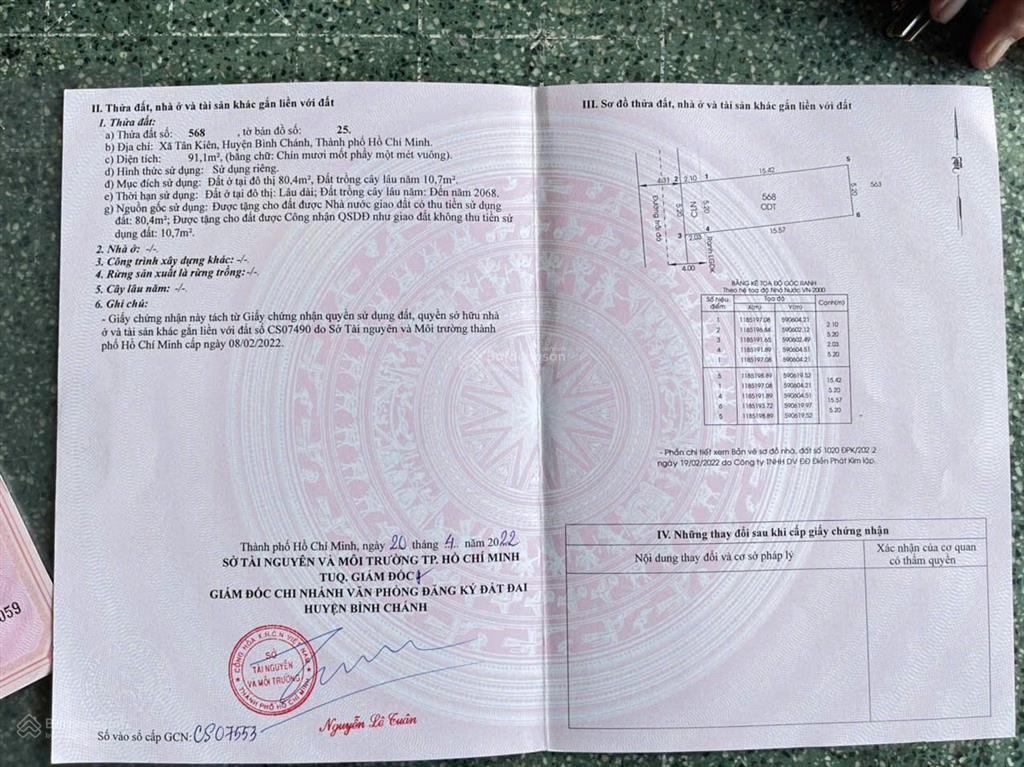 II. Thửa đất, nhà ở và tài sản khác gắn liền với đất
1. Thửa đất:
a) Thửa đất số: 568 , tờ bản đồ số: 25.
b) Địa chỉ: Xã Tân Kiên, Huyện Bình Chánh, Thành phố Hồ Chí Minh.
c) Diện tích: 91,1m², (bằng chữ: Chín mươi mốt phẩy một mét vuông).
d) Hình thức sử dụng: Sử dụng riêng.
đ) Mục đích sử dụng: Đất ở tại đô thị 80,4m², Đất trồng cây lâu năm 10,7m².
e) Thời hạn sử dụng: Đất ở tại đô thị: Lâu dài; Đất trồng cây lâu năm: Đến năm 2068.
g) Nguồn gốc sử dụng: Được tặng cho đất được Nhà nước giao đất có thu tiền sử dụng
đất: 80,4m²; Được tặng cho đất được Công nhận QSDĐ như giao đất không thu tiền sử
dụng đất: 10,7m².
2. Nhà ở: -/-.
3. Công trình xây dựng khác: -/-.
4. Rừng sản xuất là rừng trồng:-/-.
5. Cây lâu năm: -/-.
6. Ghi chú:
- Giấy chứng nhận này tách từ Giấy chứng nhận quyền sử dụng đất, quyền sở hữu nhà
ở và tài sản khác gắn liền với đất số CS07490 do Sở Tài nguyên và Môi trường thành
phố Hồ Chí Minh cấp ngày 08/02/2022.
Thành phố Hồ Chí Minh, ngày 20 tháng 4 năm 2022
SỞ TÀI NGUYÊN VÀ MÔI TRƯỜNG TP. HỒ CHÍ MINH
TUQ. GIÁM ĐỐC
GIÁM ĐỐC CHI NHÁNH VĂN PHÒNG ĐĂNG KÝ ĐẤT ĐAI
HUYỆN BÌNH CHÁNH
CỘNG HÒA X.H.C.N VIỆT NAM
SỞ
TÀI NGUYÊN
VÀ MÔI TRƯỜNG
THÀNH PHỐ HỒ CHÍ MINH
Nguyễn Lê Tuân
Số vào sổ cấp GCN: CS07553
059
Batdongsan
III. Sơ đồ thửa đất, nhà ở và tài sản khác gắn liền với đất
4.31 2 2.10 1 15.42 5
Đường trải đá
5.20
NTD
5.20
568
ODT
5.20
563
3 2.03 4 15.57 6
Ranh LGĐK
4.00
BẢNG KÊ TOẠ ĐỘ GÓC RANH
Theo hệ toạ độ Nhà Nước VN-2000
Số hiệu điểm Toạ độ Cạnh(m)
X(m) Y(m)
1 1185197.08 590604.21
2.10
2 1185196.84 590602.12
5.20
3 1185191.65 590602.49
2.03
4 1185191.89 590604.51
5.20
1 1185197.08 590604.21
5 1185198.89 590619.52
15.42
1 1185197.08 590604.21
5.20
4 1185191.89 590604.51
15.57
6 1185193.72 590619.97
5.20
5 1185198.89 590619.52
- Phần chi tiết xem Bản vẽ sơ đồ nhà, đất số 1020 ĐPK/2022
ngày 19/02/2022 do Công ty TNHH DV ĐĐ Điền Phát Kim lập.
IV. Những thay đổi sau khi cấp giấy chứng nhận
Nội dung thay đổi và cơ sở pháp lý
Xác nhận của cơ quan
có thẩm quyền